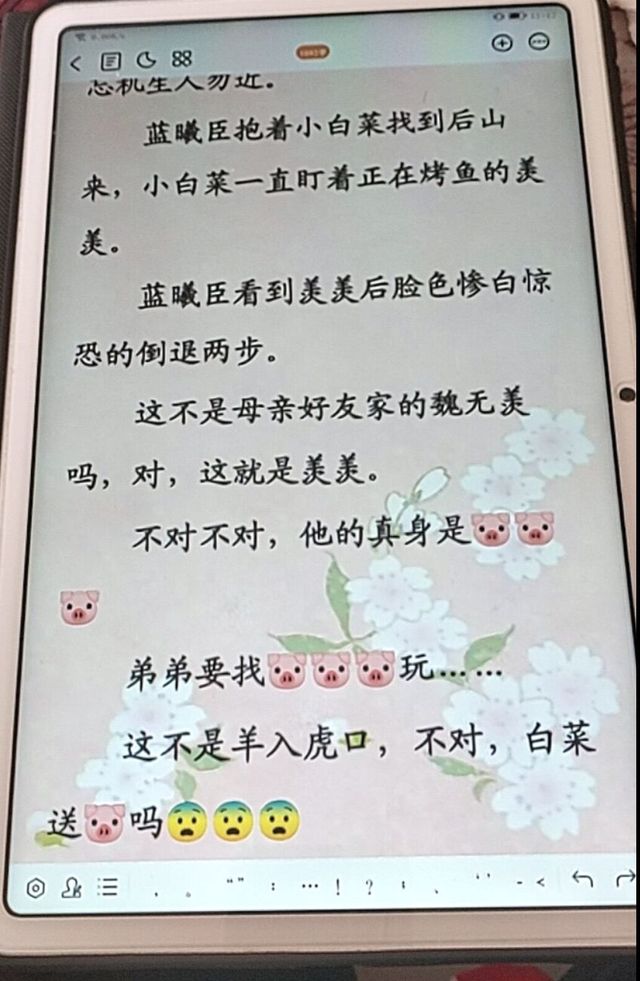 忘机生人勿近。
蓝曦臣抱着小白菜找到后山
来，小白菜一直盯着正在烤鱼的羡
羡。
蓝曦臣看到羡羡后脸色惨白惊
恐的倒退两步。
这不是母亲好友家的魏无羡
吗，对，这就是羡羡。
不对不对，他的真身是🐷🐷
🐷
弟弟要找🐷🐷🐷玩……
这不是羊入虎口，不对，白菜
送🐷吗😨😨😨